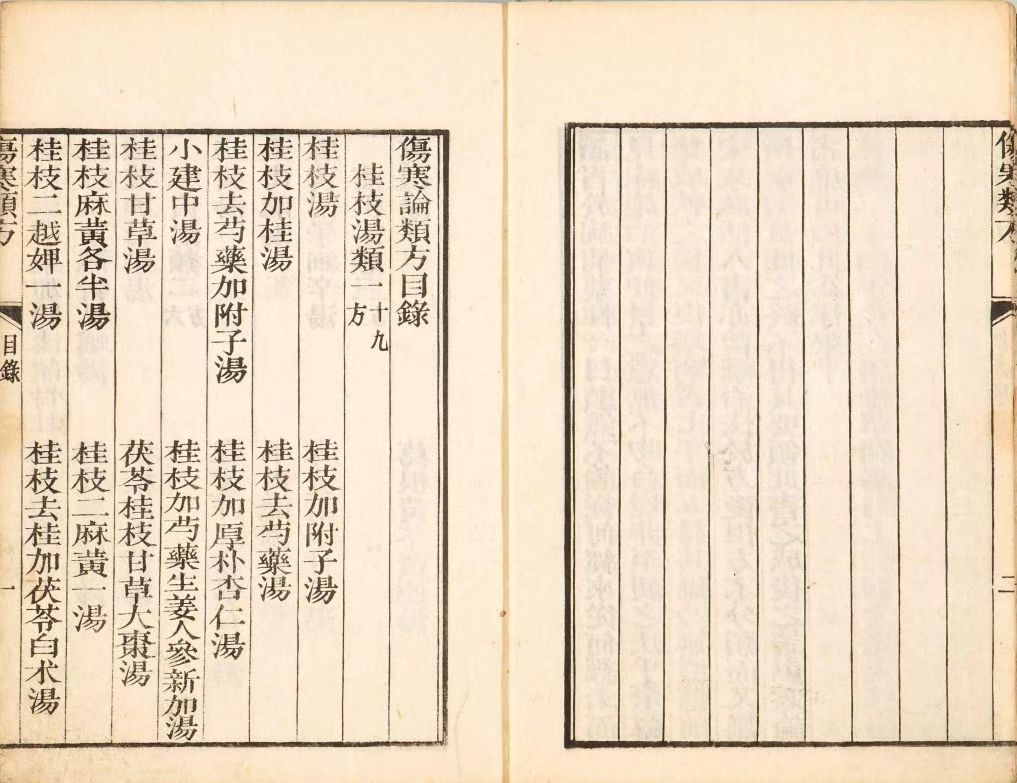 傷寒類方
二
傷寒論類方目錄
桂枝湯類一十九方
桂枝湯 桂枝加附子湯
桂枝加桂湯 桂枝去芍藥湯
桂枝去芍藥加附子湯 桂枝加厚朴杏仁湯
小建中湯 桂枝加芍藥生姜人參新加湯
桂枝甘草湯 茯苓桂枝甘草大棗湯
桂枝麻黃各半湯 桂枝二麻黃一湯
桂枝二越婢一湯 桂枝去桂加茯苓白术湯
傷寒類方
目錄
一